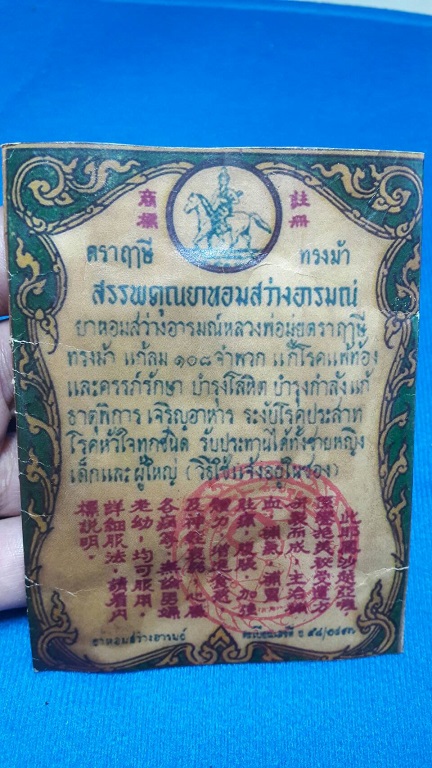 商標 註冊
ตราฤๅษี ทรงม้า
สรรพคุณยาหอมสว่างอารมณ์
ยาหอมสว่างอารมณ์หลวงพ่อ ตราฤๅษี
ทรงม้า แก้ลม ๑๐๘ จำพวก แก้โรคแพ้ท้อง
และครรภ์รักษา บำรุงโลหิต บำรุงกำลังแก้
ธาตุพิการ เจริญอาหาร ระงับโรคประสาท
โรคหัวใจทุกชนิด รับประทานได้ทั้งชายหญิง
เด็กและผู้ใหญ่ (วิธีใช้แจ้งอยู่ในซอง)
方
而成，主治
血，補氣，補胃，
肚痛，腹脹，加速
體力，增進食慾，
及神經衰弱，心臟
各病等，無論男婦
老幼，均可服用，
詳細服法，請看內
標說明。
ยาหอมสว่างอารมณ์